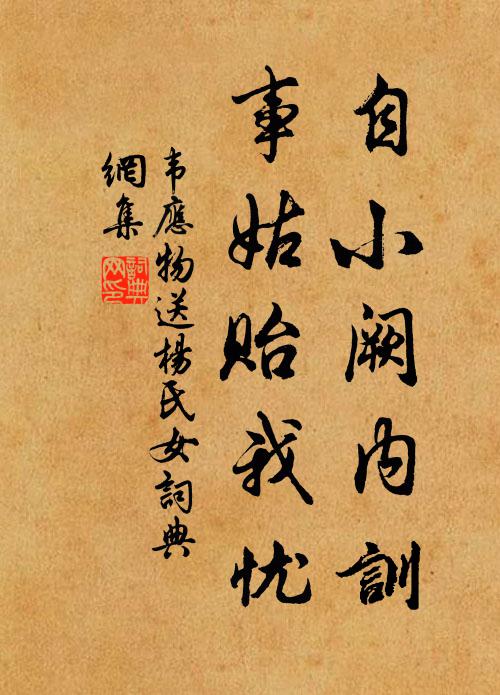 自小阙内訓
事姑贻我忧
韦應物送楊氏女詞典
網集
詞典
网印